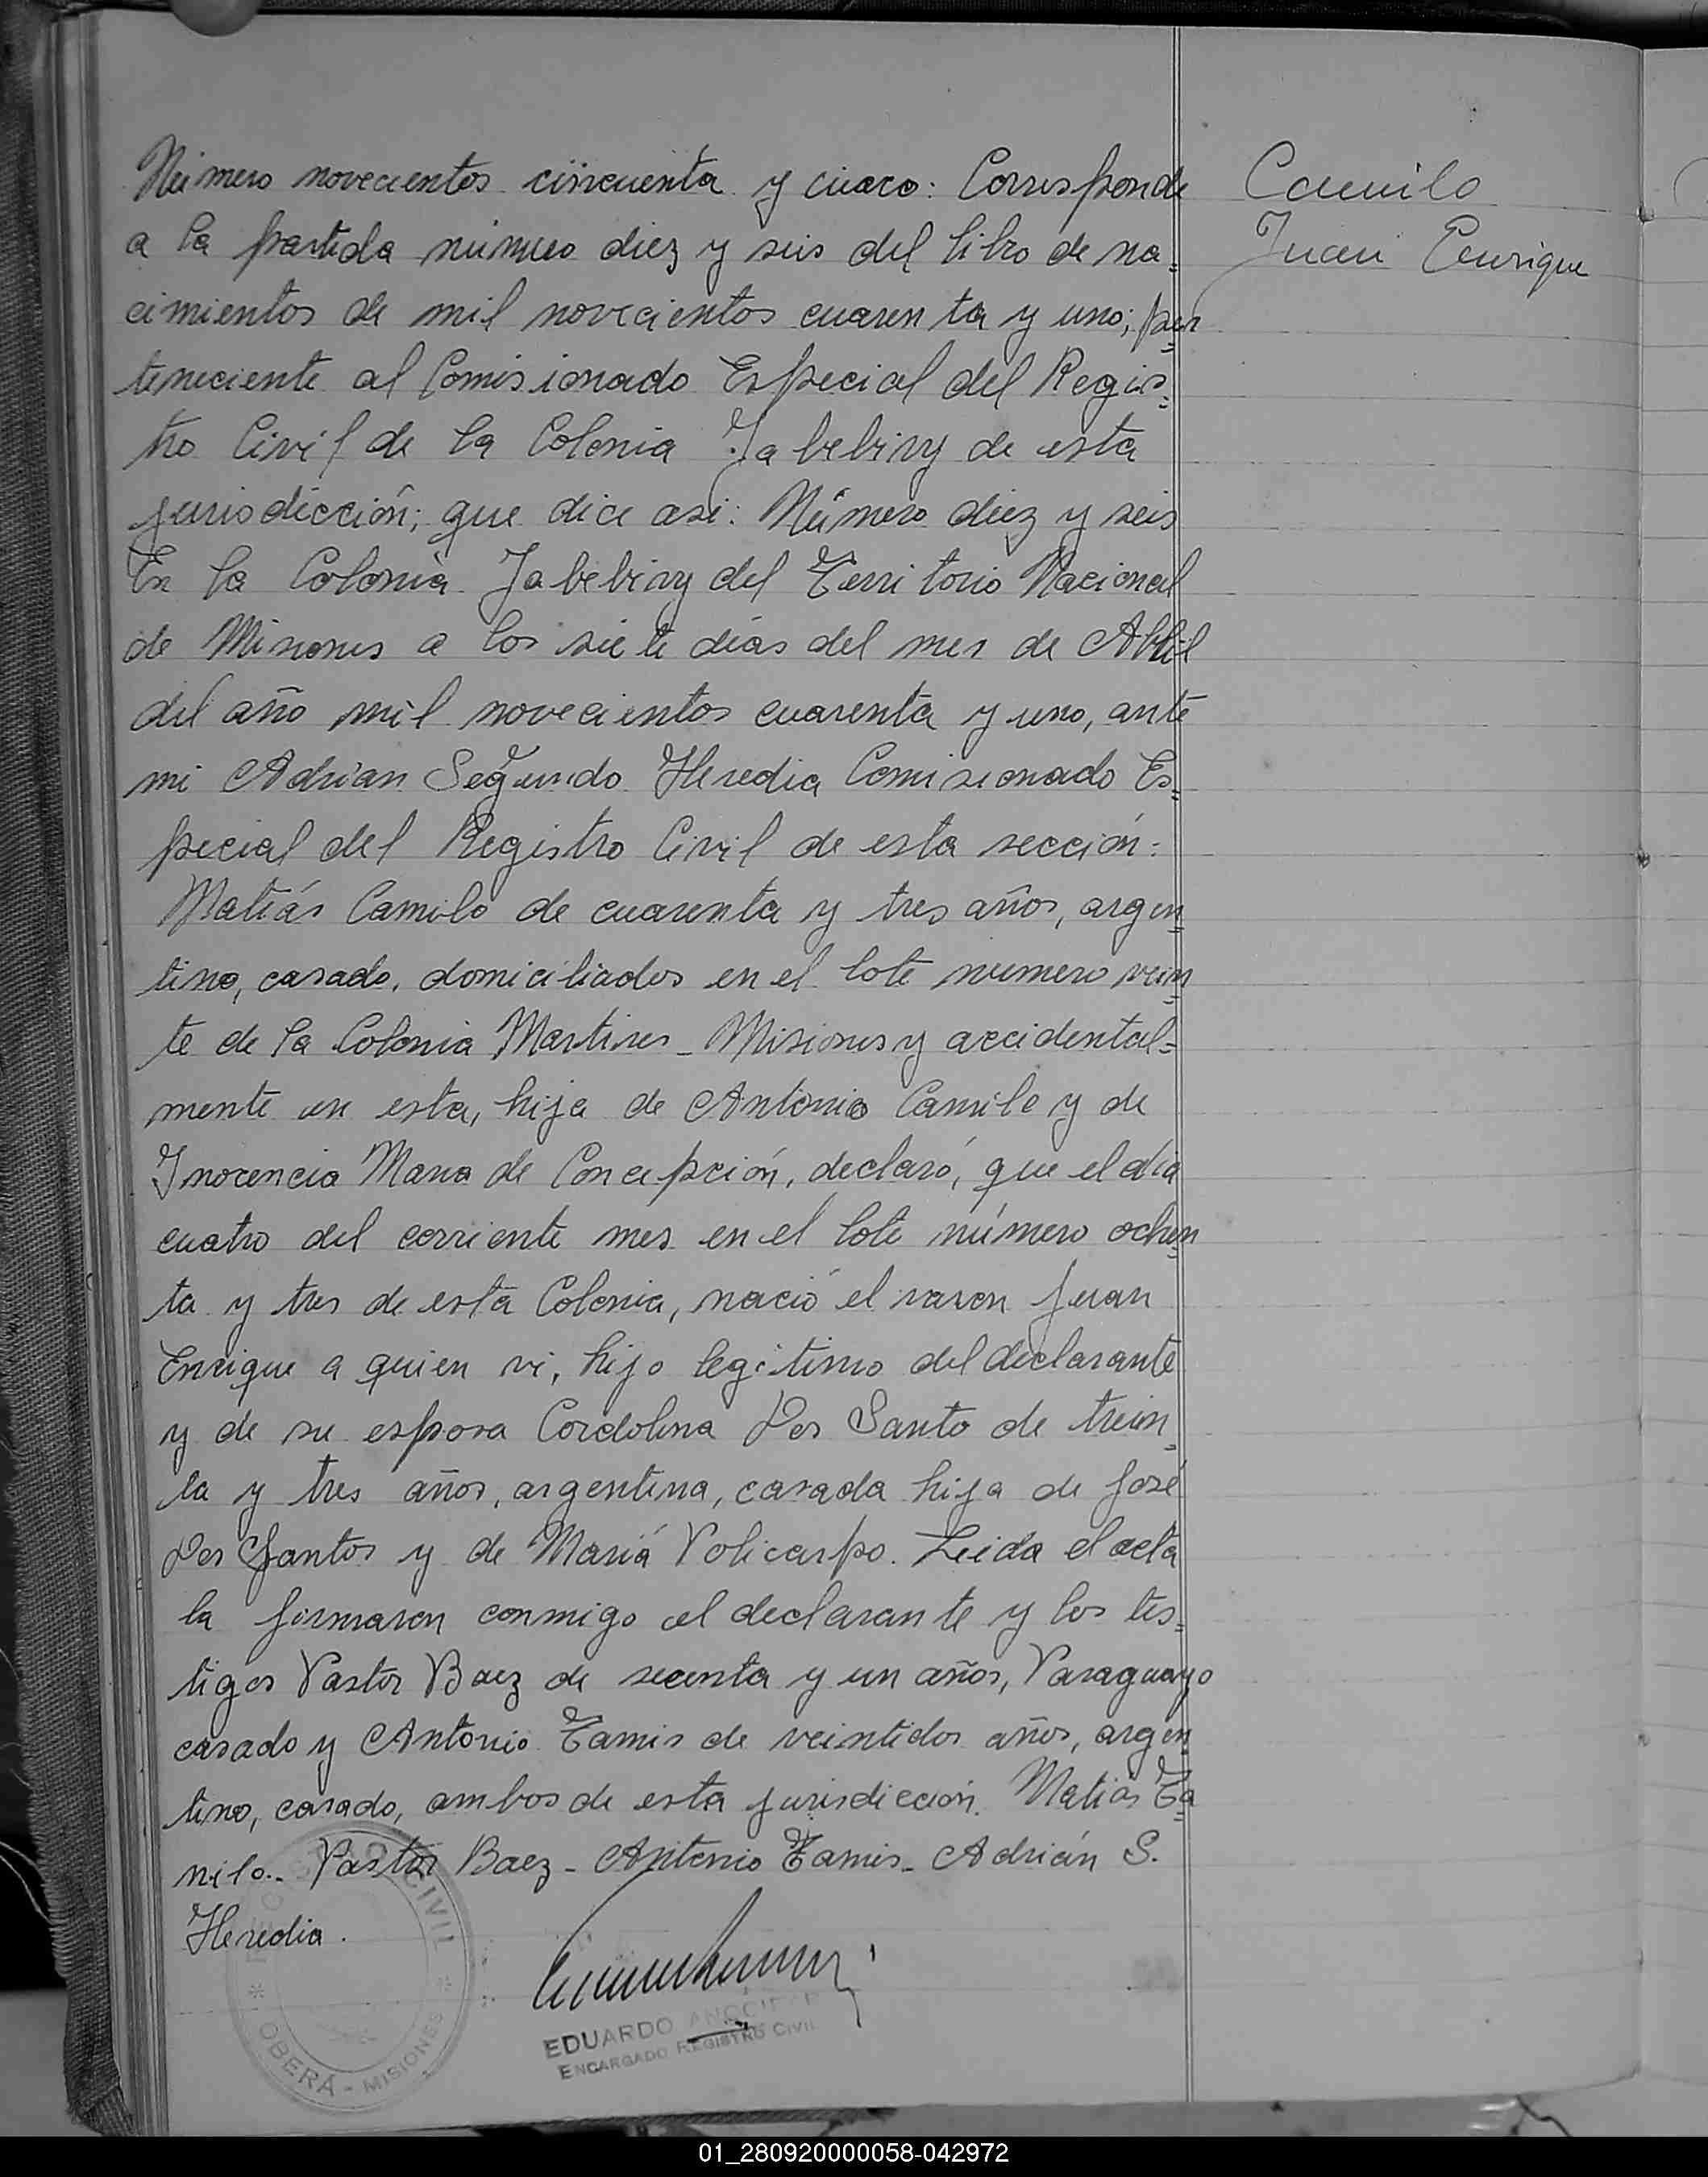 Número novecientos cincuenta y cuaro: Corresponde
a la partida número diez y seis del libro de na=
cimientos de mil novecientos cuarenta y uno; per=
teneciente al Comisionado Especial del Regis=
tro Civil de la Colonia Jabebiry de esta
jurisdicción; que dice asi: Número diez y seis
En la Colonia Jabebiry del Territorio Nacional
de Misiones a los siete días del mes de Abril
del año mil novecientos cuarenta y uno, ante
mi Adrian Segundo Heredia Comisionado Es=
pecial del Registro Civil de esta sección:
Matías Camilo de cuarenta y tres años, argen=
tino, casado, domiciliados en el lote numero vein=
te de la Colonia Martires - Misiones y accidental=
mente en esta, hijo de Antonio Camilo y de
Inocencia Maria de Concepción, declaró, que el día
cuatro del corriente mes en el lote número ochen=
ta y tres de esta Colonia, nació el varon Juan
Enrique a quien vi, hijo legitimo del declarante
y de su esposa Cordolina Dos Santo de trein=
ta y tres años, argentina, casada hija de José
Dos Santos y de Mariá Policarpo. Leida el acta
la firmaron conmigo el declarante y los tes=
tigos Pastor Baez de secenta y un años, Paraguayo
casado y Antonio Tamis de veintidos años, argen=
tino, casado, ambos de esta jurisdicción. Matías Ca=
milo.- Pastor Baez - Antonio Tamis - Adrián S.
Heredia.
Camilo
Juan Enrique
REGISTRO CIVIL
OBERÁ - MISIONES
EDUARDO
ENCARGADO REGISTRO CIVIL
01_280920000058-042972